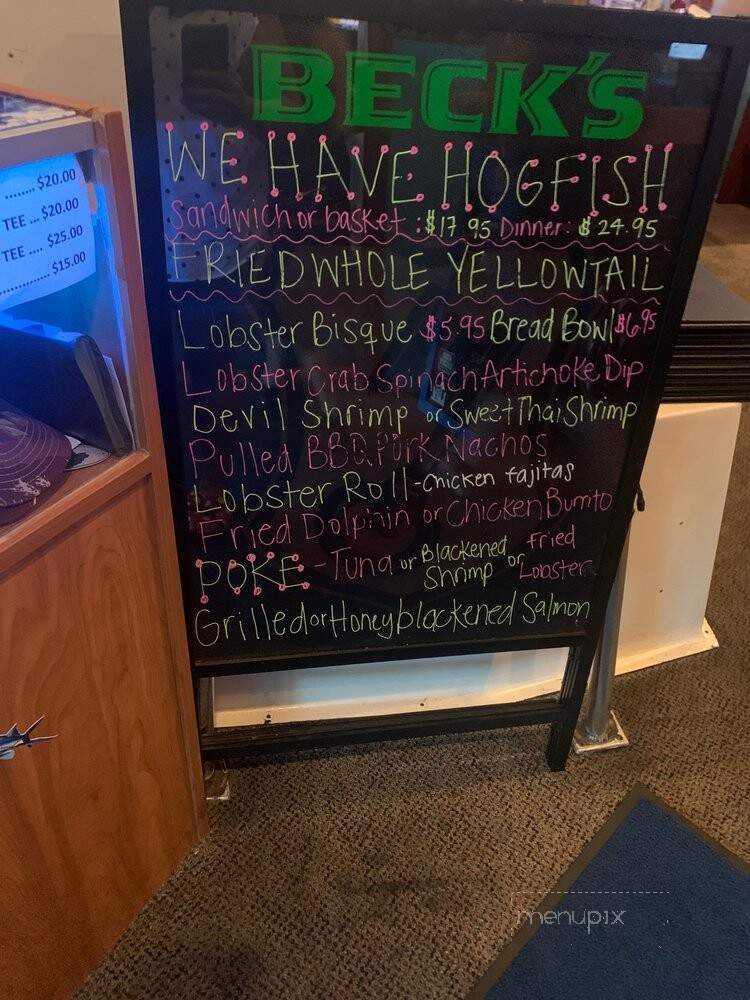 BECK'S
WE HAVE HOGFISH
Sandwich or basket: $17.95 Dinner: $24.95
FRIED WHOLE YELLOWTAIL
Lobster Bisque $5.95 Bread Bowl $6.95
Lobster Crab Spinach Artichoke Dip
Devil Shrimp or Sweet Thai Shrimp
Pulled BBQ Pork Nachos
Lobster Roll - chicken fajitas
Fried Dolphin or Chicken Burrito
POKE - Tuna or Blackened Shrimp or fried Lobster
Grilled or Honey blackened Salmon
........ $20.00
TEE ... $20.00
TEE .... $25.00
............. $15.00
menupix